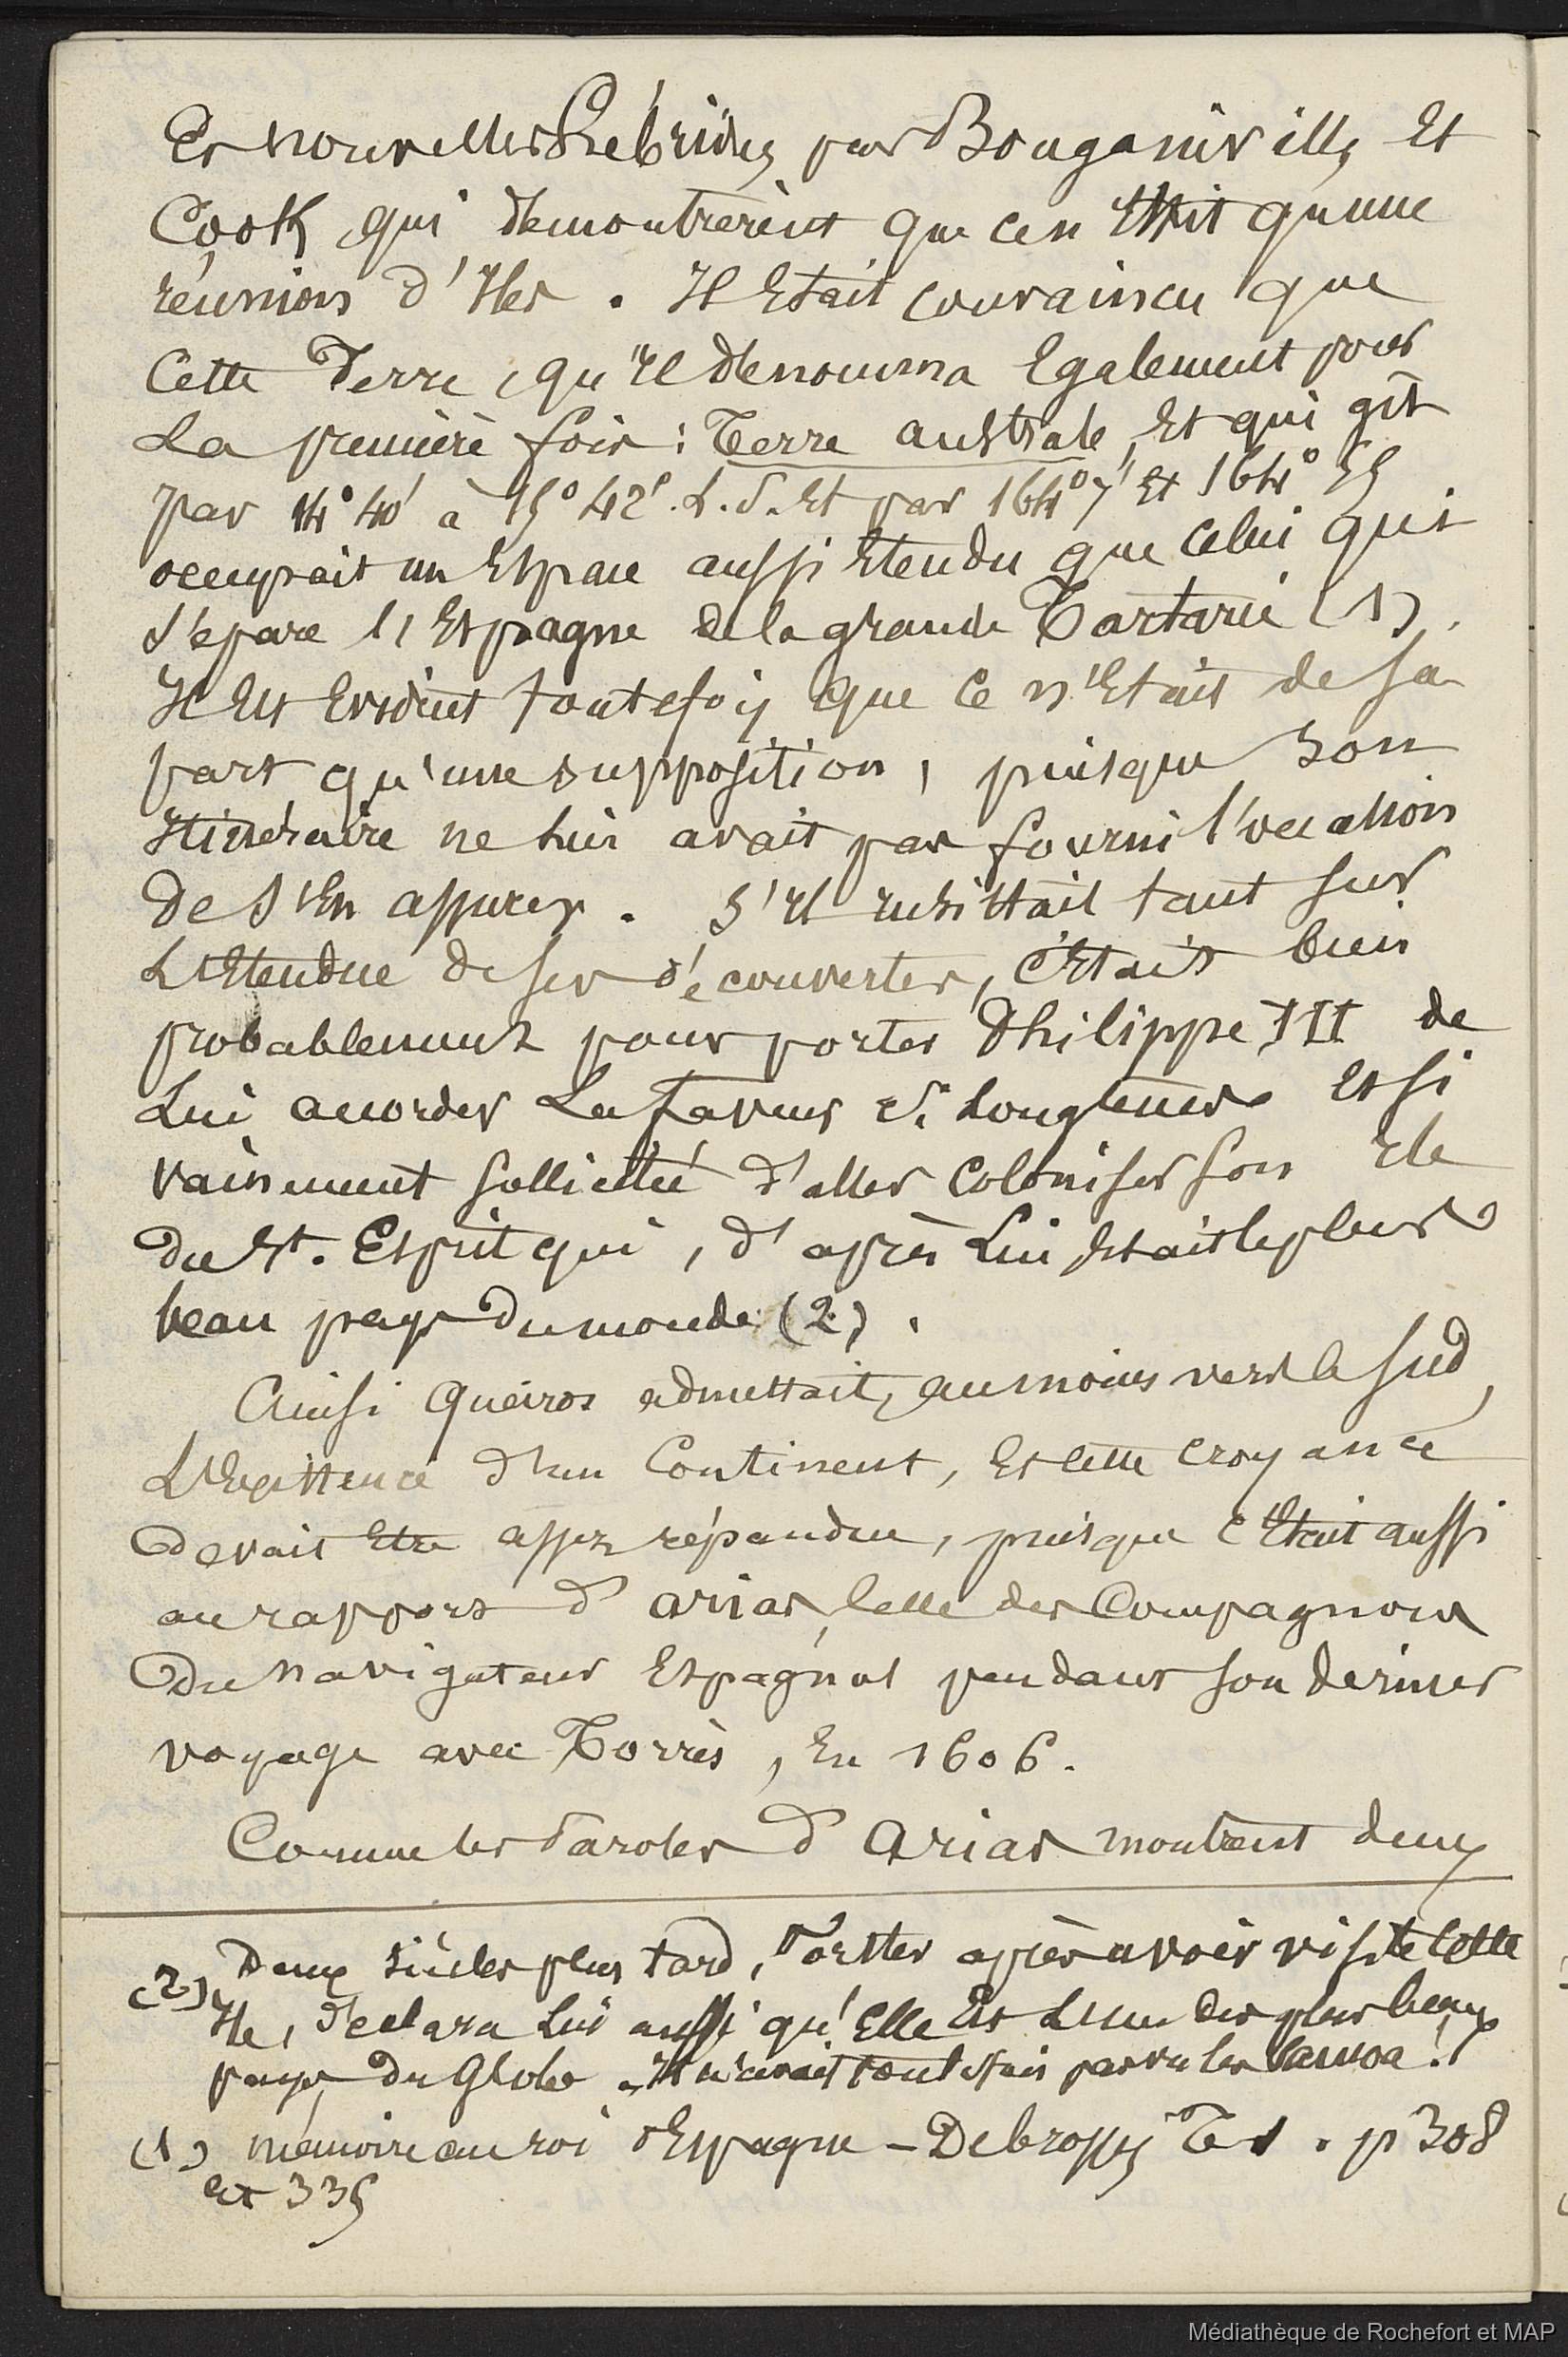 Es nouvelles hébrides par Bougainville Et
Cook, qui démontrèrent que ce n'Etait qu'une
réunions d'Iles. Il Etait convaincu que
Cette Terre, qu'il dénomma Egalement pour
La première fois : Terre australe, Et qui gît
par 14° 40' à 15° 42'. L. S. Et par 164° 7' Et 164° 55
occupait un Espace aussi Etendu que celui qui
sépare l'Espagne de la grande Tartarie (1).
Il Est Evident toutefois que ce n'Etait de sa
part qu'une supposition, puisque son
Itinéraire ne lui avait pas fourni l'occasion
de s'En assurer. S'il insistait tant sur
L'Etendue de ses découvertes, c'Etait bien
probablement pour porter Philippe III de
Lui accorder La faveur si longtemps Et si
vainement sollicitée d'aller coloniser son Ile
du St. Esprit qui, d'après Lui Etait le plus
beau pays du monde (2).
Ainsi Queiros admettait, au moins vers le sud,
L'Existence d'un Continent, Et cette croyance
devait Etre assez répandue, puisque c'Etait aussi
au rapport d'arias, celle des Compagnons
Du navigateur Espagnol pendant son dernier
voyage avec Torrès, En 1606.
Comme les Paroles d'Arias montrent deux
(2) Deux siècles plus tard, Forster après avoir visité Cette
Ile, déclara Lui aussi qu'Elle Est L'un des plus beaux
pays du Globe. Il n'avait toutefois pas vu les Samoa !
(1) mémoire au roi d'Espagne - Debrosses T. 1. p 308
et 335
Médiathèque de Rochefort et MAP